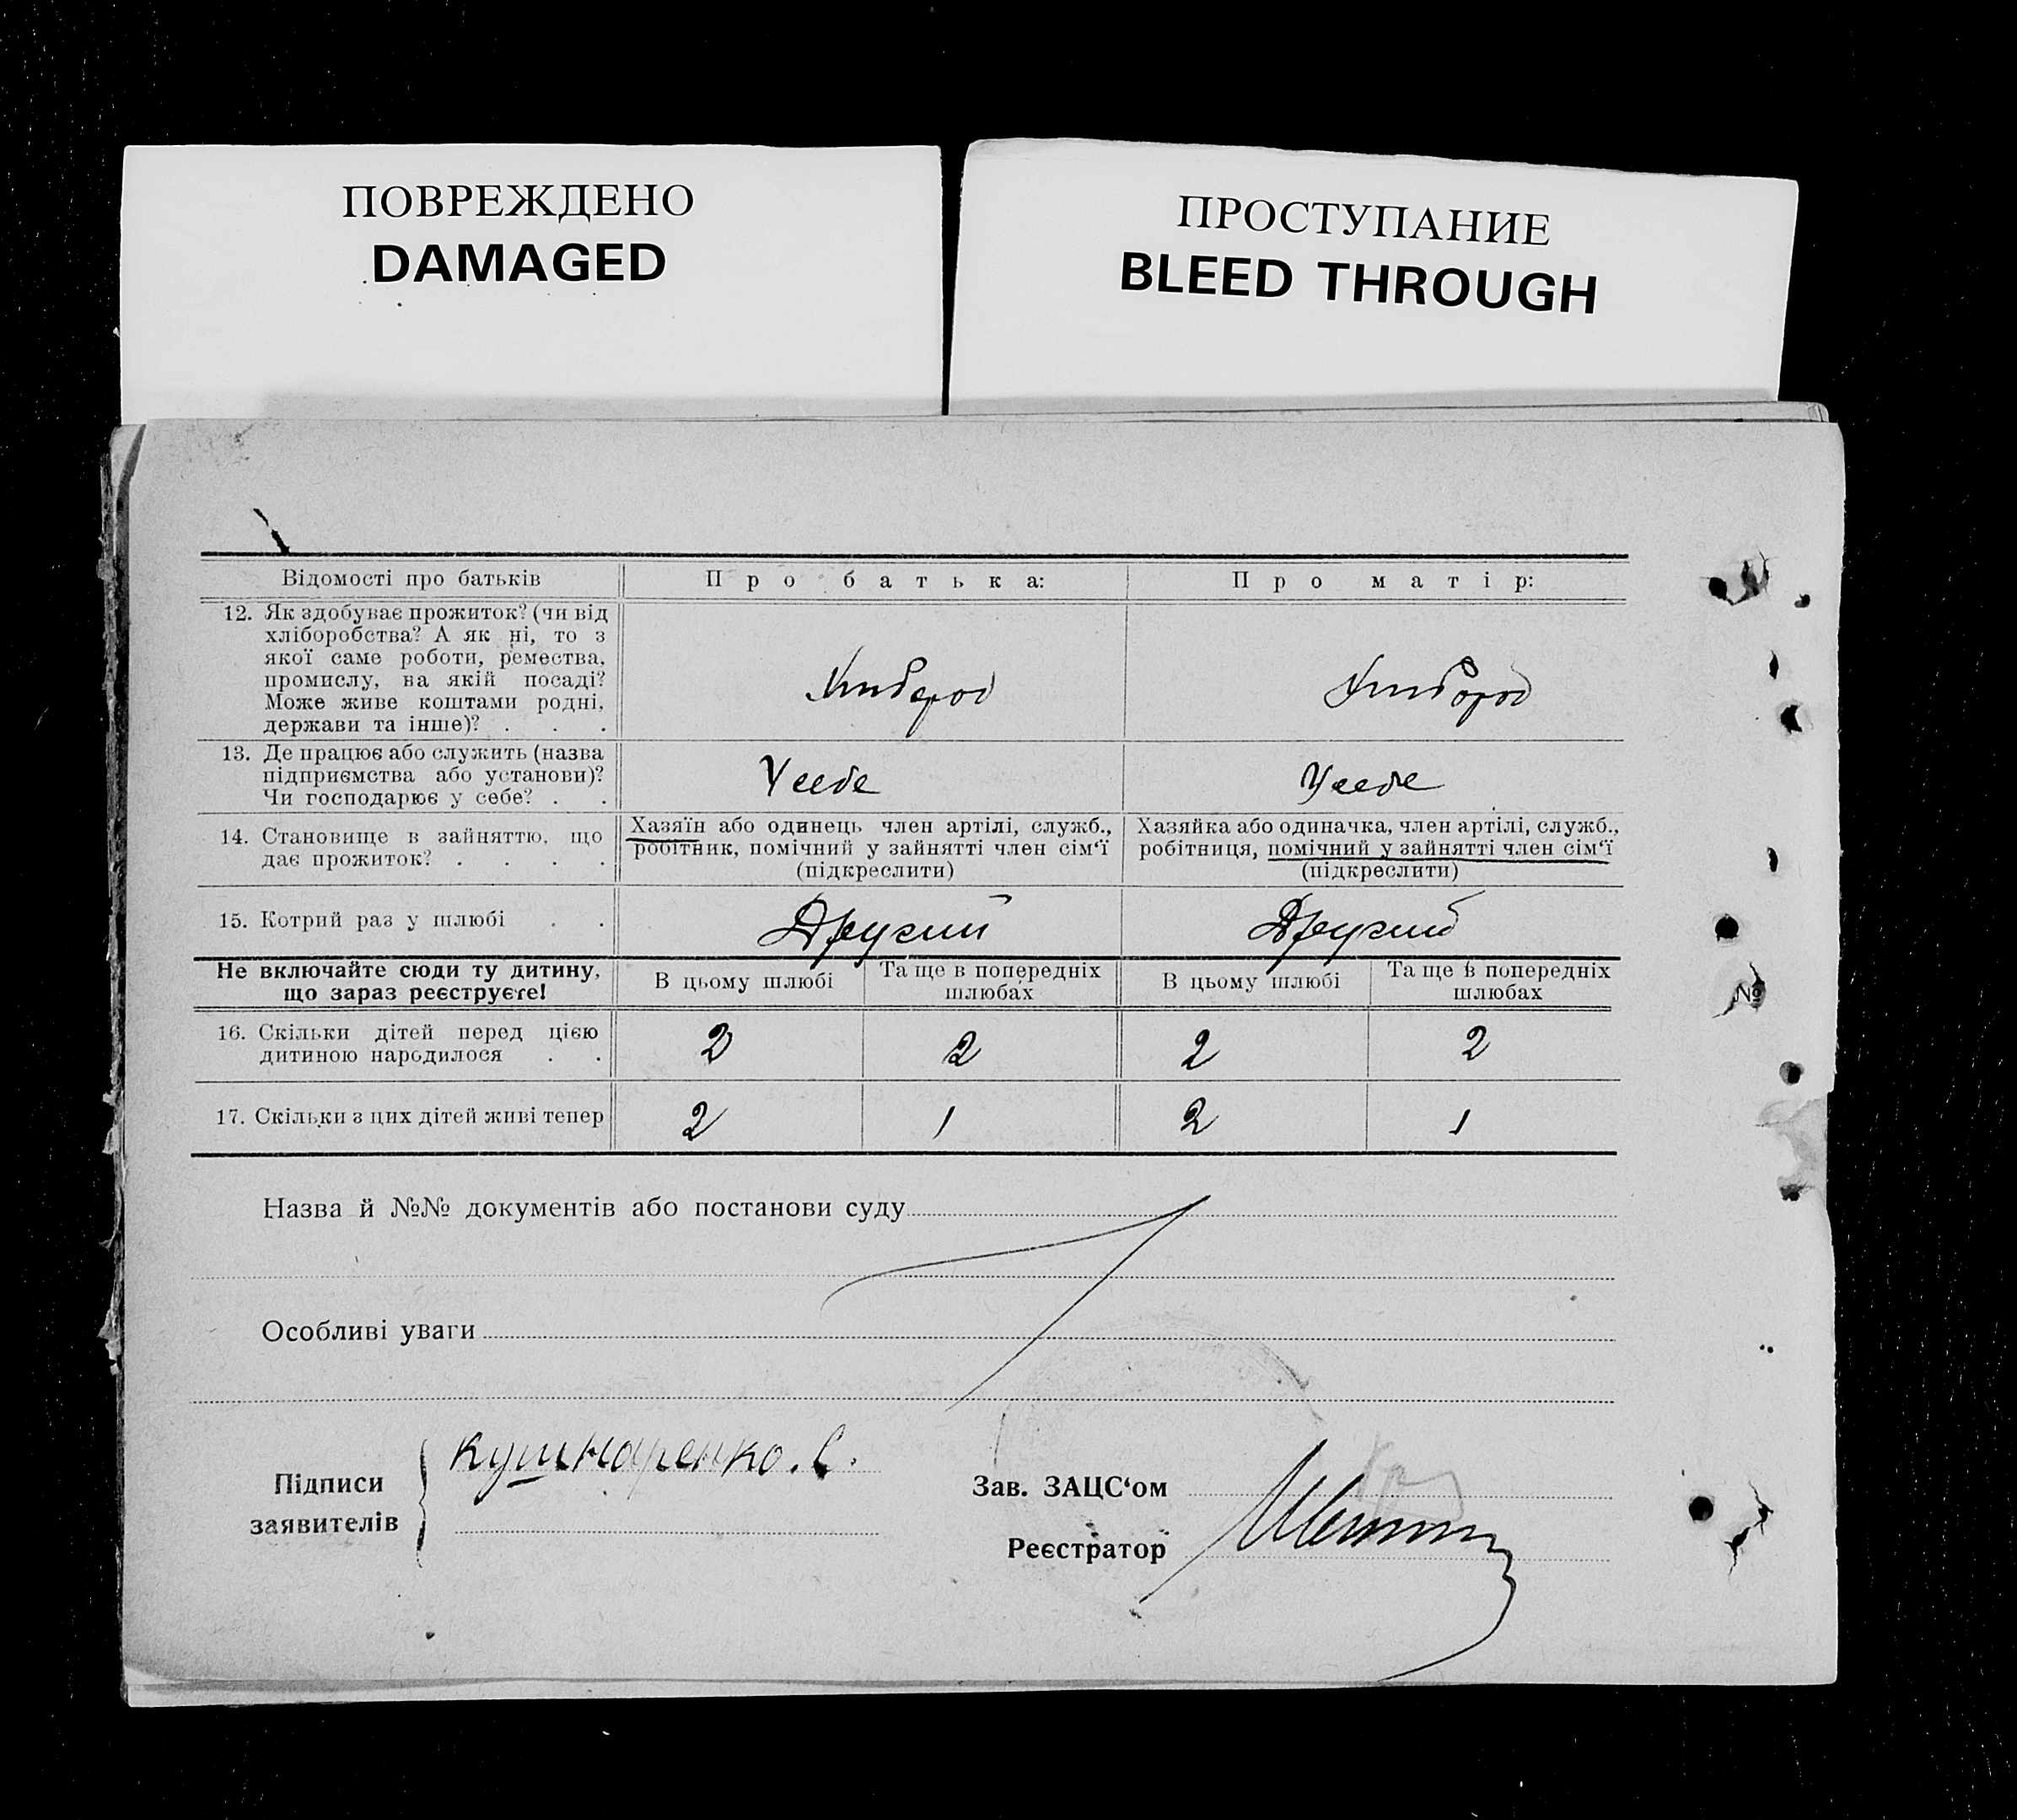 ПОВРЕЖДЕНО
DAMAGED
ПРОСТУПАНИЕ
BLEED THROUGH
Відомості про батьків
Про батька:
Про матір:
12. Як здобуває прожиток? (чи від
хліборобства? А як ні, то з
якої саме роботи, ремества,
промислу, на якій посаді?
Може живе коштами родні,
держави та інше)? . . .
Хлібороб
Хлібороб
13. Де працює або служить (назва
підприємства або установи)?
Чи господарює у себе? . .
У себе
У себе
14. Становище в зайняттю, що
дає прожиток? . . . .
Хазяїн або одинець член артілі, служб.,
робітник, помічний у зайнятті член сім‘ї
(підкреслити)
Хазяйка або одиначка, член артілі, служб.,
робітниця, помічний у зайнятті член сім‘ї
(підкреслити)
15. Котрий раз у шлюбі . .
Другий
Другий
Не включайте сюди ту дитину,
що зараз реєструєте!
В цьому шлюбі
Та ще в попередніх
шлюбах
В цьому шлюбі
Та ще в попередніх
шлюбах
16. Скільки дітей перед цією
дитиною народилося . .
2
2
2
2
17. Скільки з цих дітей живі тепер
2
1
2
1
№
Назва й №№ документів або постанови суду
Особливі уваги
Підписи
заявителів
Кушнаренко. С.
Зав. ЗАЦС‘ом
Реєстратор